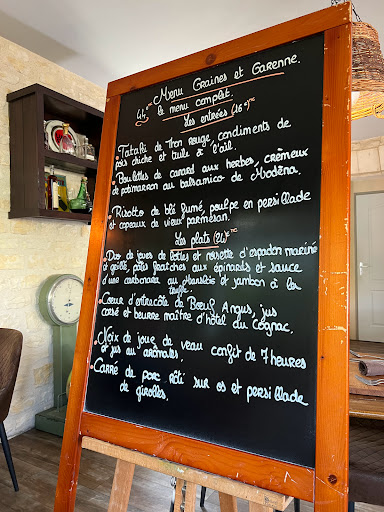 Menu Graines et Garenne.
44,°° le menu complet.
Les entrées (16°°)
•Tataki de Thon rouge, condiments de
pois chiche et tuile à l'ail.
•Boulettes de canard aux herbes, crémeux
de potimarron au balsamico de Modena.
•Risotto de blé fumé, poulpe en persillade
et copeaux de vieux parmesan.
Les plats (24°°)
•Duo de joues de lottes et noisette d'espadon mariné
et grillé, pâtes fraîches aux épinards et sauce
d'une carbonara au et jambon à la
truffe.
•Coeur d'entrecôte de Boeuf Angus, jus
corsé et beurre maître d'hôtel au Cognac.
•Noix de joue de veau confit de 7 heures
et jus au aromates.
•Carré de porc rôti sur os et persillade
de girolles.